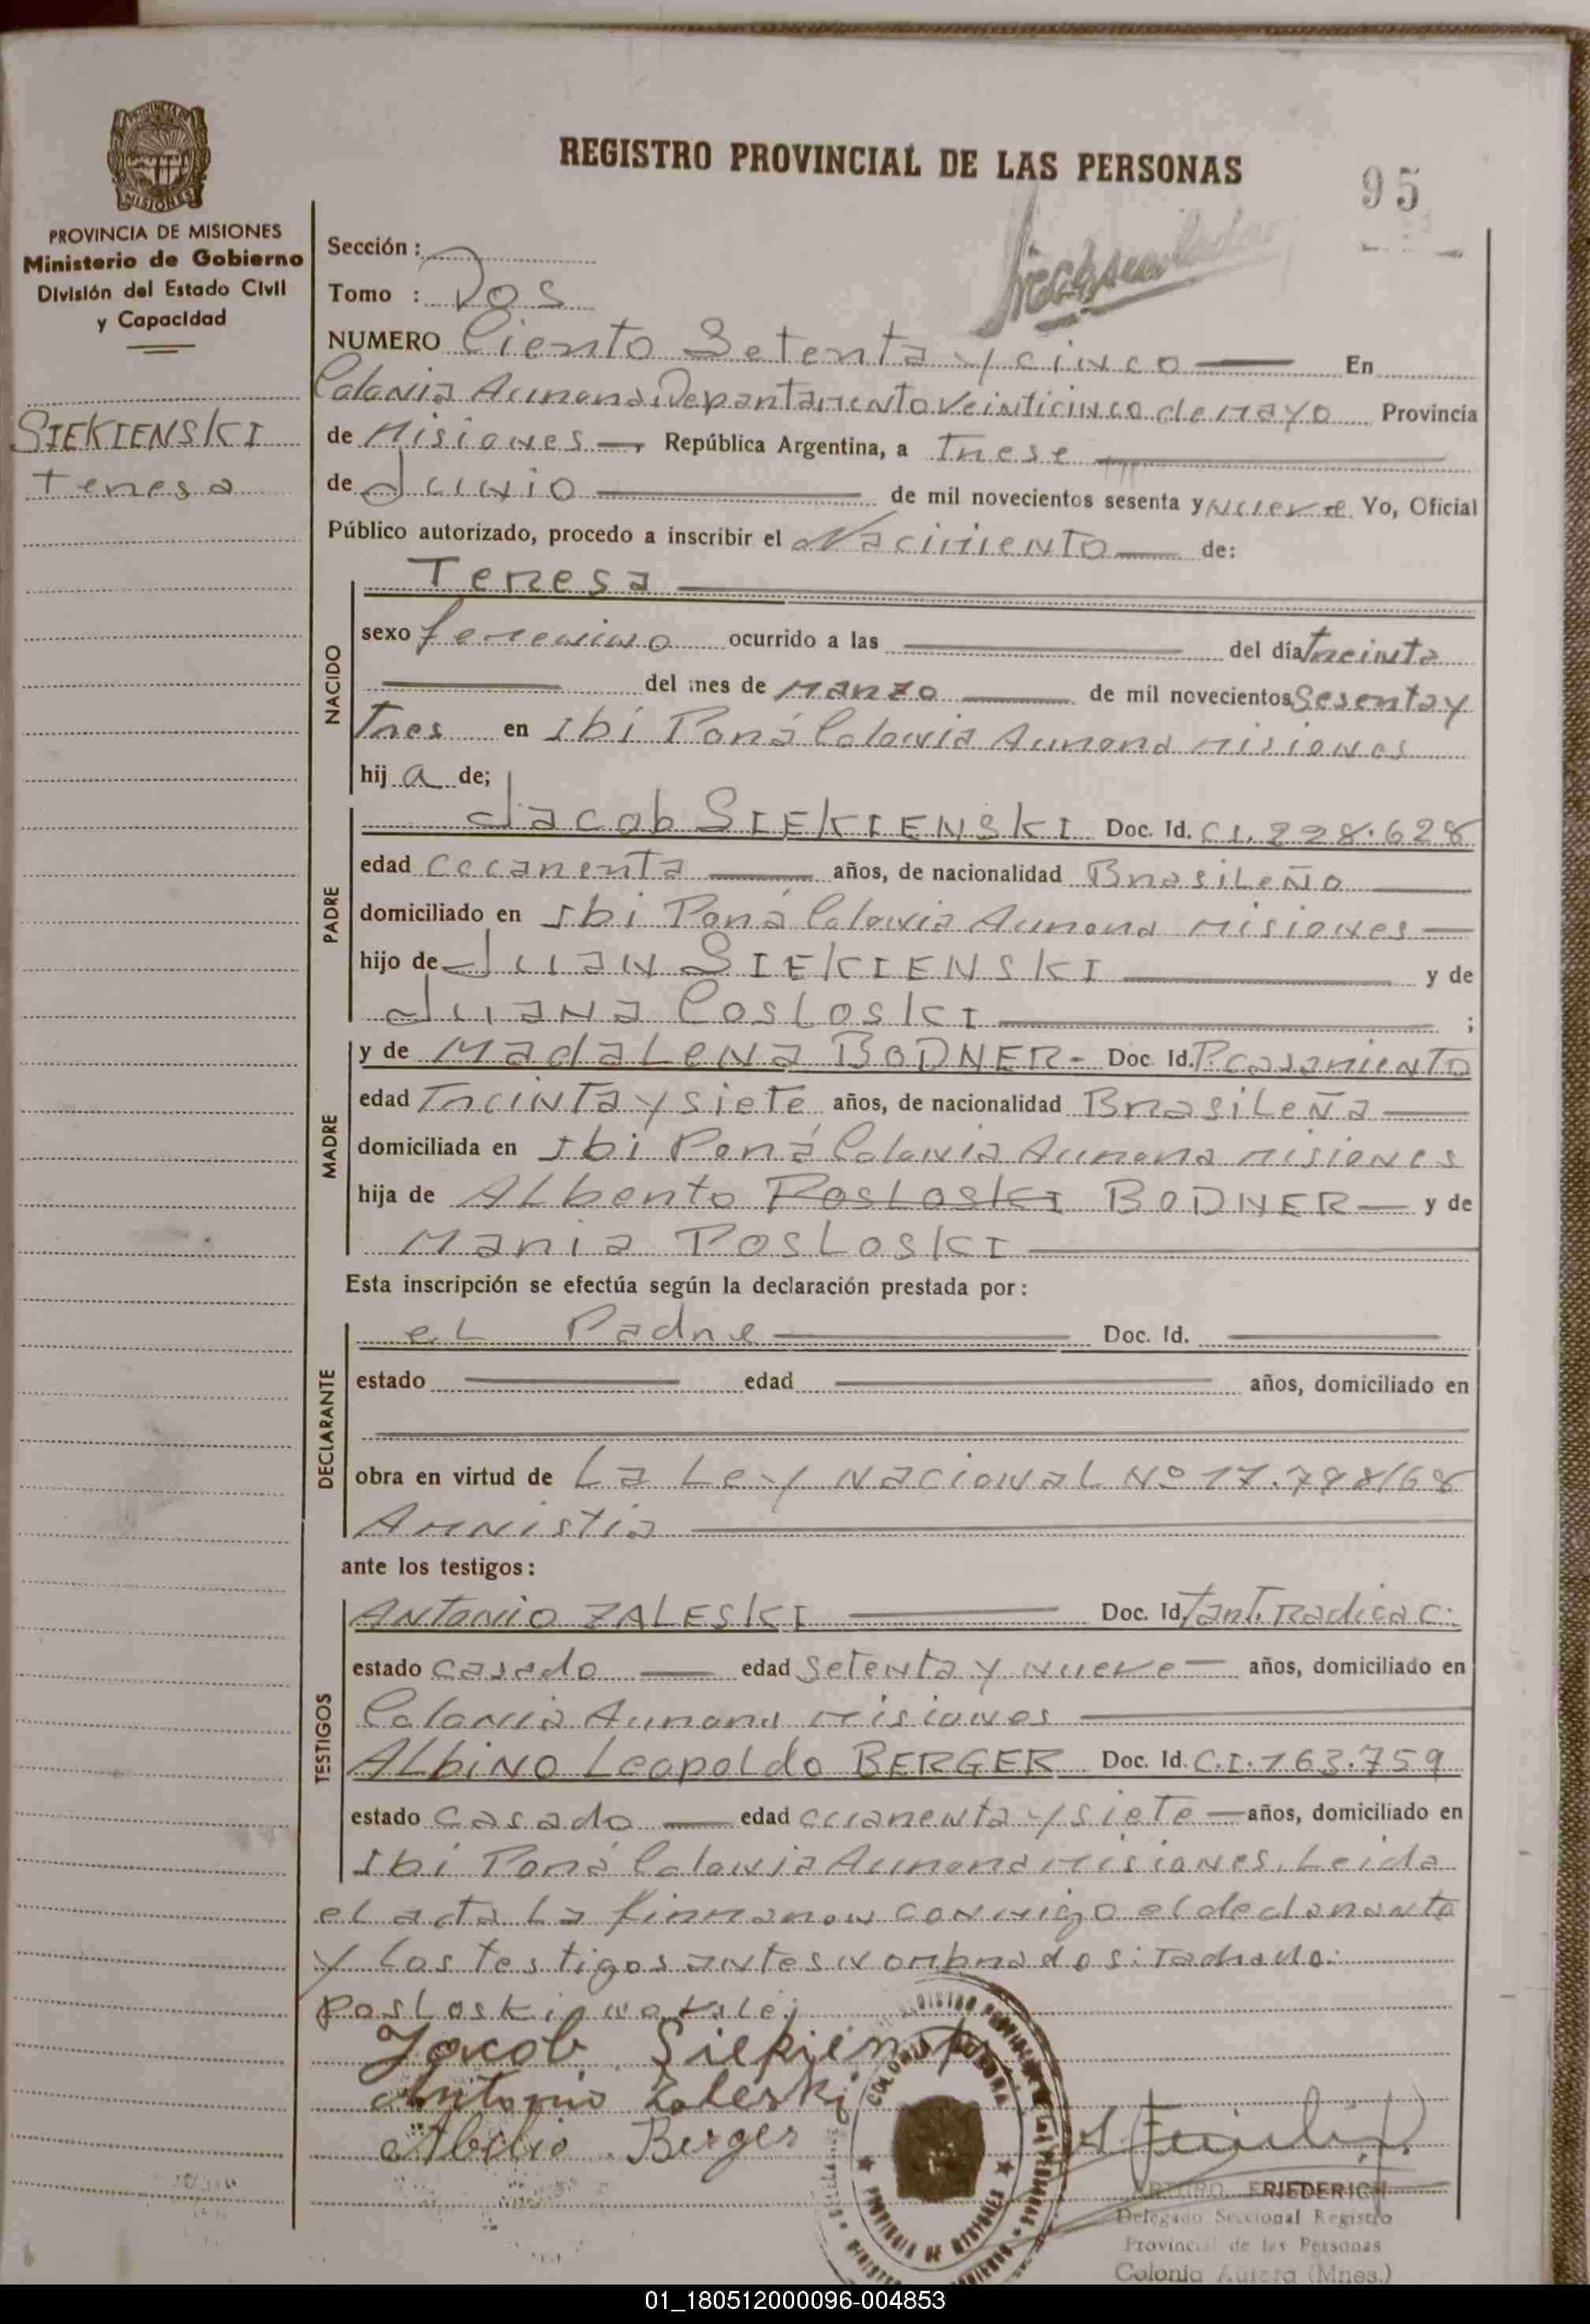 REGISTRO PROVINCIAL DE LAS PERSONAS
95
PROVINCIA DE MISIONES
MISIONES
PROVINCIA DE MISIONES
Ministerio de Gobierno
División del Estado Civil
y Capacidad
SIEKIENSKI
Teresa
Sección :
Tomo : Dos
NUMERO Ciento Setenta y cinco En
Colonia Aurora, Departamento Veinticinco de mayo Provincia
de Misiones República Argentina, a Trese
de Junio de mil novecientos sesenta y Nueve Yo, Oficial
Público autorizado, procedo a inscribir el Nacimiento de:
Teresa
NACIDO
sexo femenino ocurrido a las del día treinta
del mes de Marzo de mil novecientos Sesenta y
tres en Ibi Porá Colonia Aurora Misiones
hij a de;
PADRE
Jacob SIEKIENSKI Doc. Id. CI. 228.628
edad Cuarenta años, de nacionalidad Brasileño
domiciliado en Ibi Porá Colonia Aurora Misiones
hijo de Juan SIEKIENSKI y de
Juana Cosloski ;
MADRE
y de Madalena BODNER- Doc. Id. P. Casamiento
edad Treinta y siete años, de nacionalidad Brasileña
domiciliada en Ibi Porá Colonia Aurora Misiones
hija de Alberto Posloski BODNER y de
Maria Posloski
Esta inscripción se efectúa según la declaración prestada por:
DECLARANTE
el Padre Doc. Id.
estado edad años, domiciliado en
obra en virtud de La Ley Nacional Nº 17.798/68
Amnistia
ante los testigos:
TESTIGOS
Antonio ZALESKI Doc. Id. Tarj. Radicac.
estado Casado edad setenta y nueve años, domiciliado en
Colonia Aurora Misiones
Albino Leopoldo BERGER Doc. Id. C.I. 163.759
estado Casado edad cuarenta y siete años, domiciliado en
Ibi Porá Colonia Aurora Misiones. Leida
el acta La firmaron conmigo el declarante
y Los testigos antes nombrados: Tachado:
Posloski no vale;
Jacob Siekienski
Antonio Zaleski
Berger
COLONIA AURORA
PROVINCIA DE MISIONES
FRIEDERICH
Delegado Seccional Registro
Provincial de las Personas
Colonia Aurora (Mnes.)
01_180512000096-004853